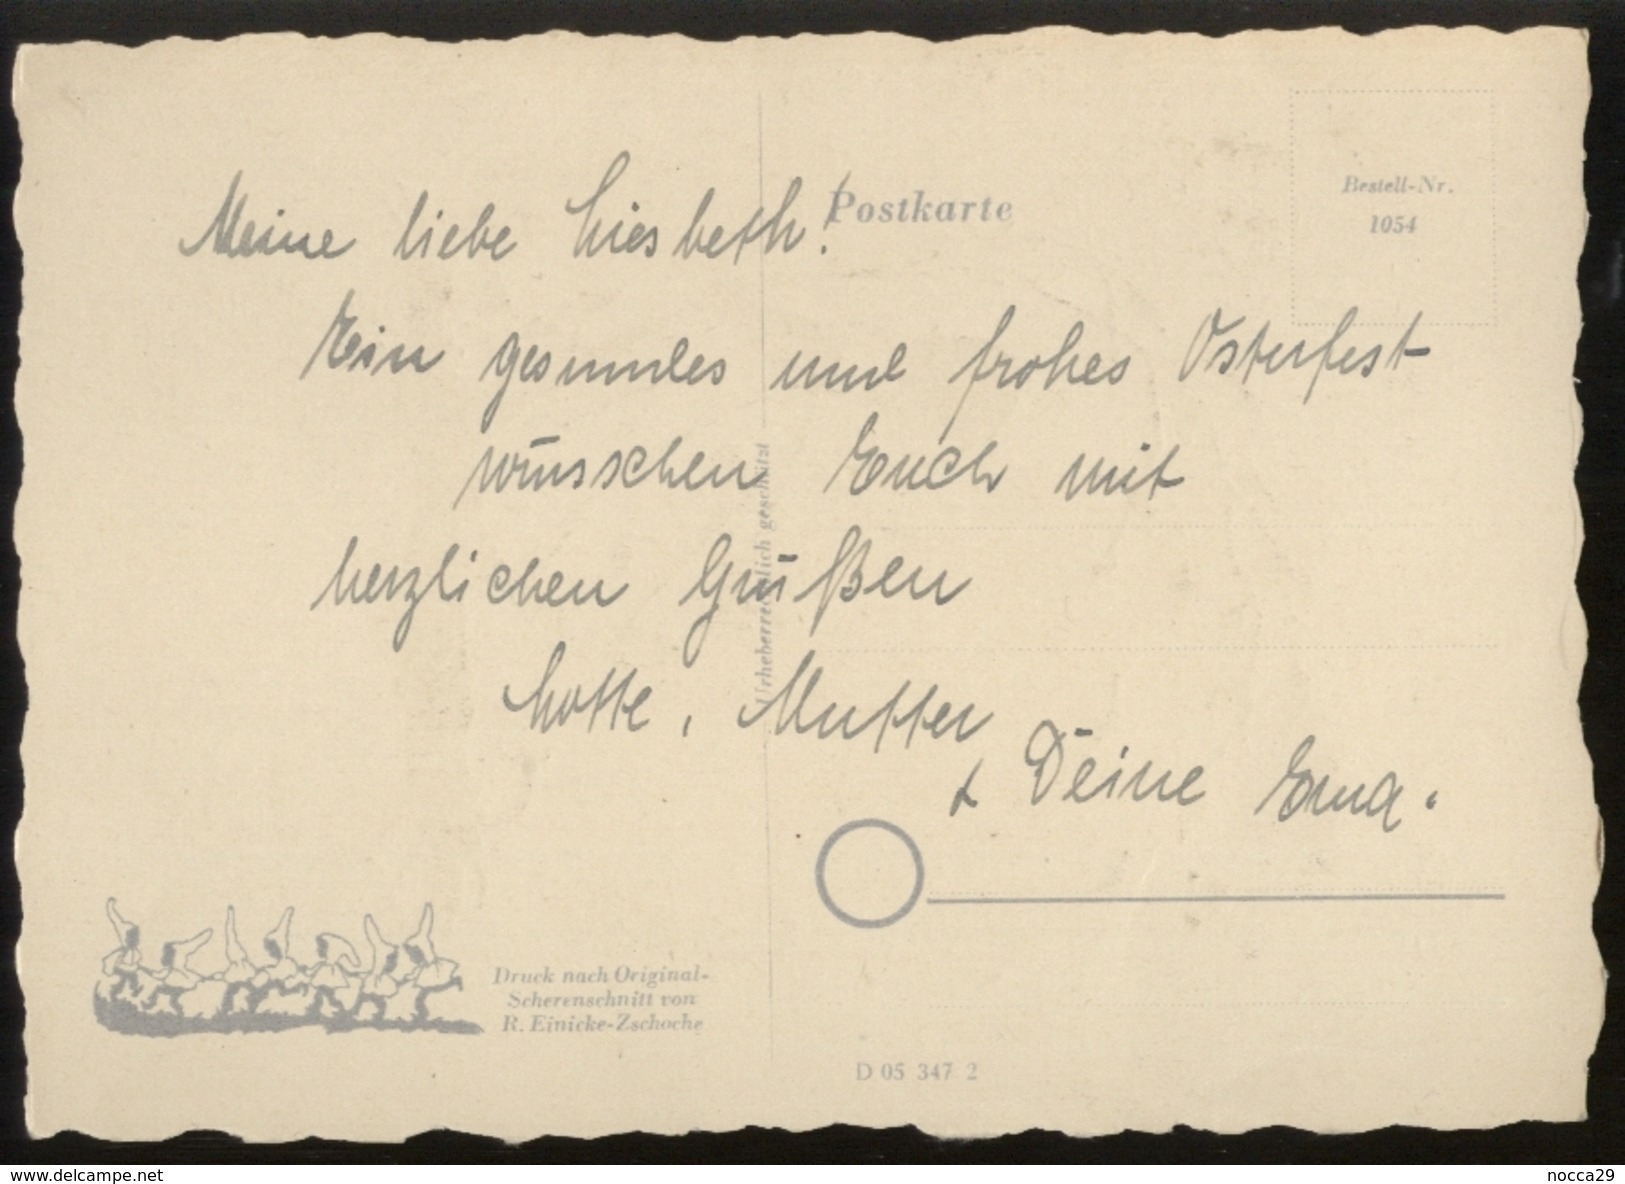 Postkarte
Bestell-Nr.
1054
Meine liebe Liesbeth!
Ein gesundes und frohes Osterfest
wünschen Euch mit
herzlichen Grüßen
Lotte, Mutter
+ Deine Erna.
Urheberrechtlich geschützt
Druck nach Original-
Scherenschnitt von
R. Einicke-Zschoche
D 05 347 2
www.delcampe.net
nocca29